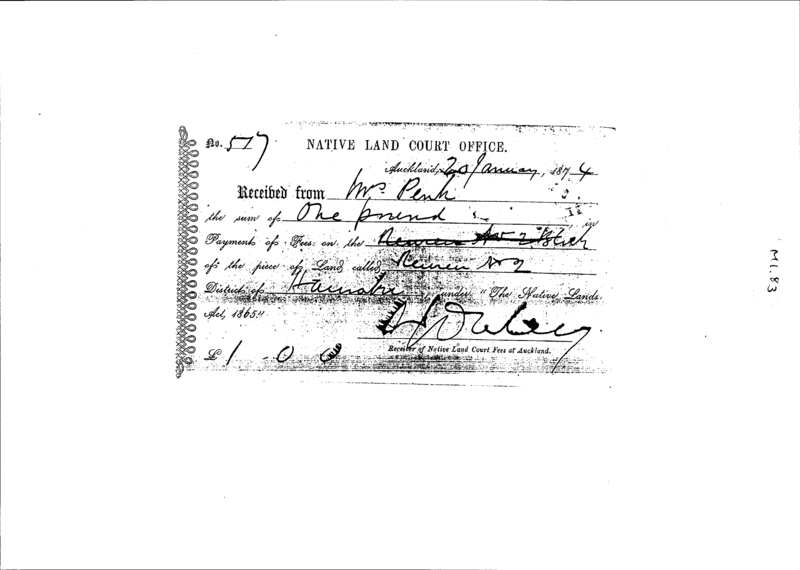 No. 517
NATIVE LAND COURT OFFICE.
Auckland, 20 January, 1874
Received from Mrs. Penk
the sum of One pound in
Payment of Fees on the
of the piece of Land called No 2
District of under "The Native Lands
Act, 1865."
Receiver of Native Land Court Fees at Auckland.
£1-0-0
ML83